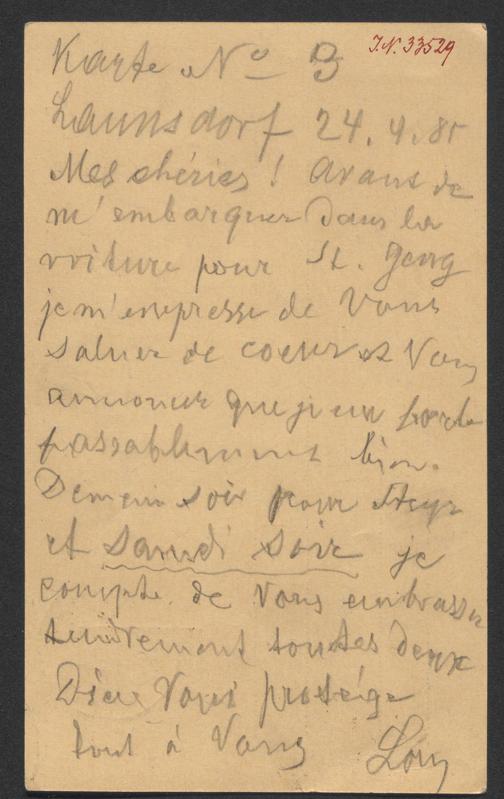 Karte No 3
J.N. 33529
Launsdorf 24. 4. 85
Mes chéries! Avant de
m'embarquer dans la
voiture pour St. Georg
je m'empresse de Vous
saluer de coeur et Vous
annoncer que je me porte
passablement bien.
Demain soir pour Steyr
et samedi soir je
compte de Vous embrasser
tendrement toutes deux
Dieu Vous protège
tout à Vous Lou